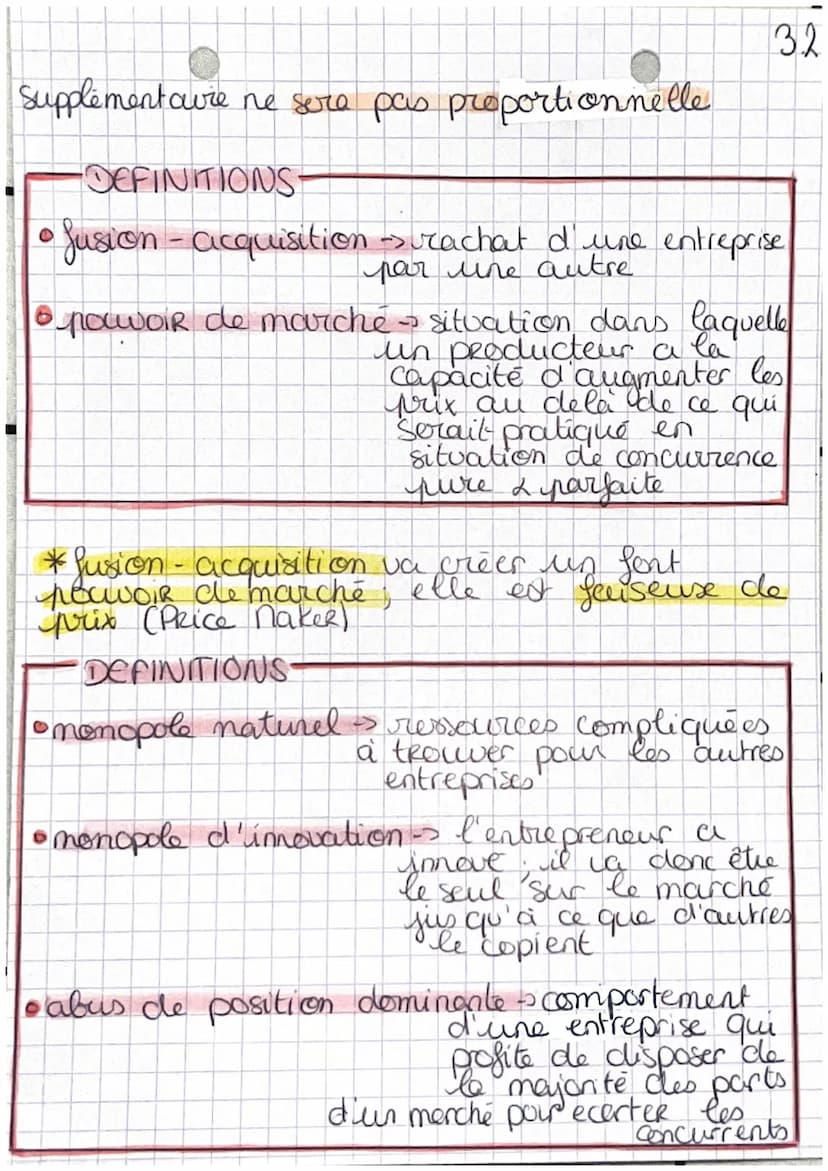 32
supplémentaire ne sera pas proportionnelle
DEFINITIONS
• fusion - acquisition -> rachat d'une entreprise
par une autre
• pouvoir de marché -> situation dans laquelle
un producteur a la
capacité d'augmenter les
prix au delà de ce qui
serait pratiqué en
situation de concurrence
pure & parfaite
* fusion - acquisition va créer un fort
pouvoir de marché, elle est faiseuse de
prix (Price Maker)
DEFINITIONS
• monopole naturel -> ressources compliquées
à trouver pour les autres
entreprises
• monopole d'innovation -> l'entrepreneur a
innové, il va donc être
le seul sur le marché
jusqu'à ce que d'autres
le copient
• abus de position dominante -> comportement
d'une entreprise qui
profite de disposer de
la majorité des parts
d'un marché pour ecarter les
concurrents